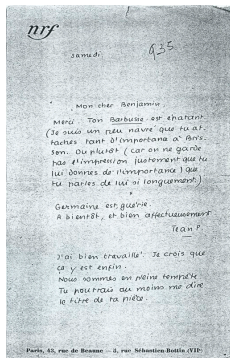 nrf
samedi
935
Mon cher Benjamin
Merci. Ton Barbusse est épatant
(Je suis un peu navré que tu at-
taches tant d'importance à Bris-
son. Ou plutôt (car on ne garde
pas l'impression justement que tu
lui donnes de l'importance) que
tu parles de lui si longuement.)
Germaine est guérie.
A bientôt, et bien affectueusement
Jean P.
J'ai bien travaillé. Je crois que
ça y est enfin.
Nous sommes en pleine tempête.
Tu pourrais au moins me dire
le titre de ta pièce.
Paris, 43, rue de Beaune — 5, rue Sébastien-Bottin (VIIe)